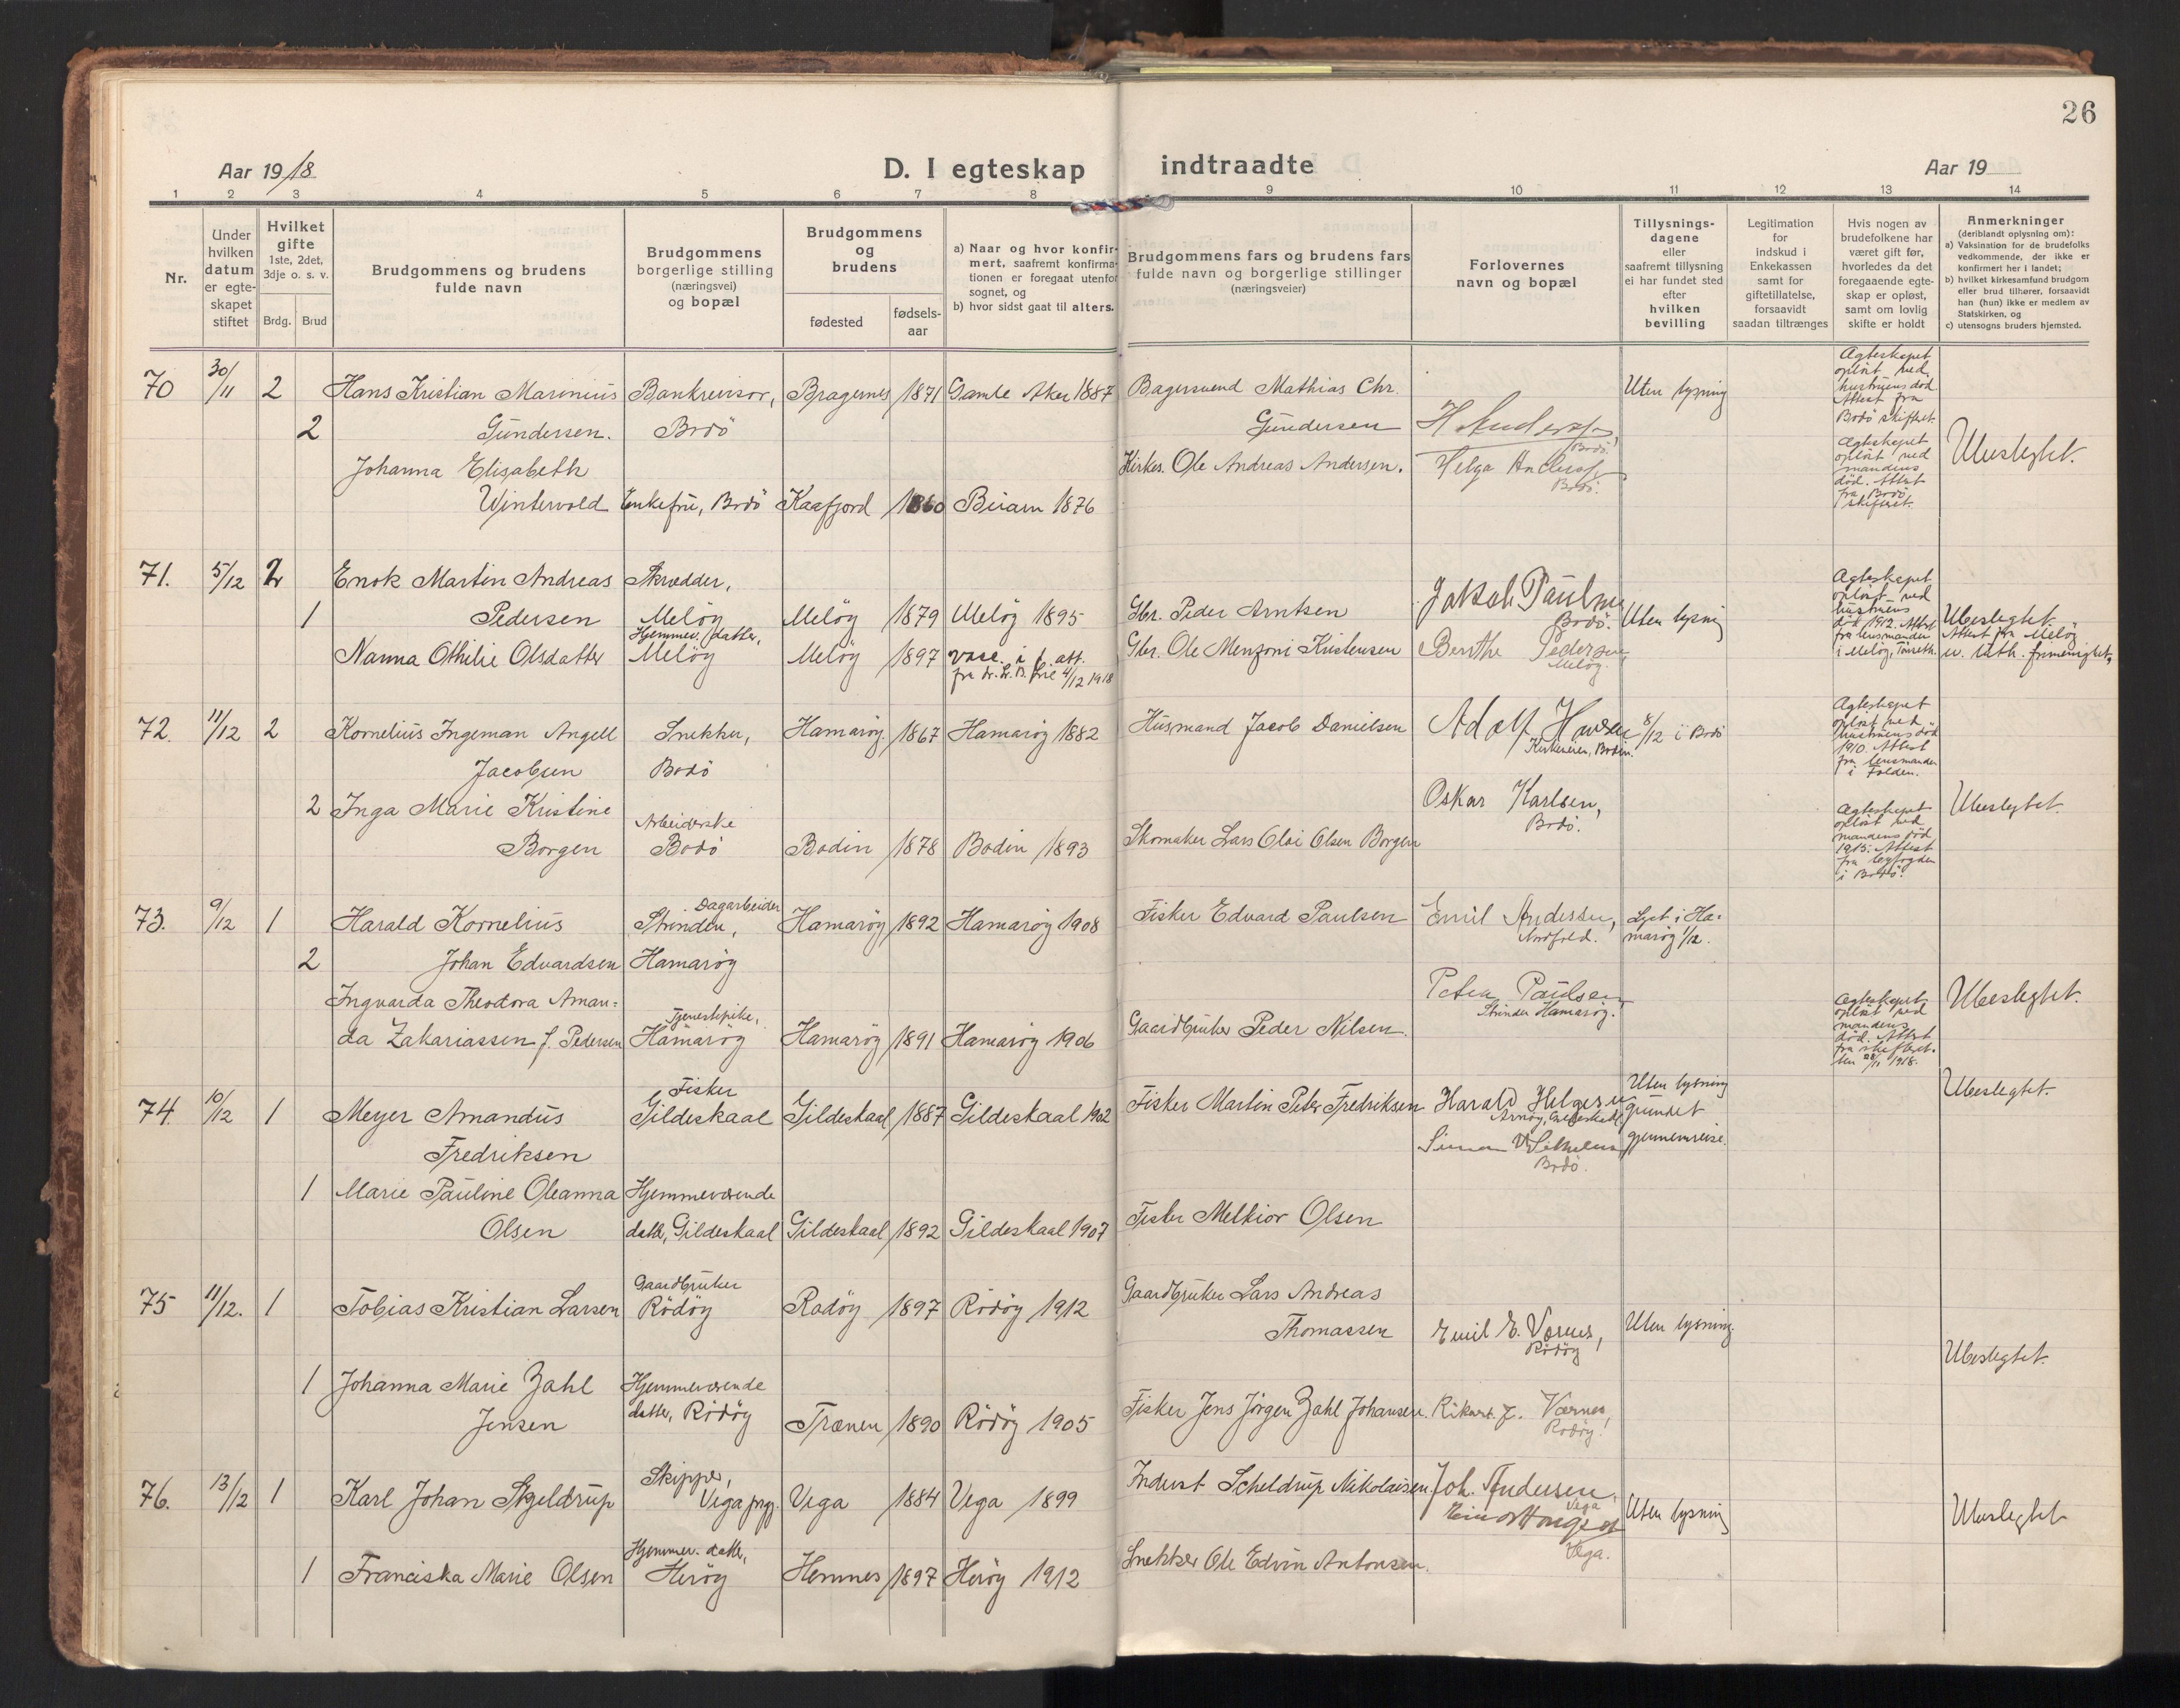 26
Aar 1918
D. I egteskap indtraadte
Aar 19
1 2 3 4 5 6 7 8 9 10 11 12 13 14
Nr.
Under hvilken datum er egte-skapet stiftet
Hvilket gifte 1ste, 2det, 3dje o. s. v.
Brdg. Brud
Brudgommens og brudens fulde navn
Brudgommens borgerlige stilling (næringsvei) og bopæl
Brudgommens og brudens
fødested
fødsels-aar
a) Naar og hvor konfir-mert, saafremt konfirma-tionen er foregaat utenfor sognet, og
b) hvor sidst gaat til alters.
Brudgommens fars og brudens fars fulde navn og borgerlige stillinger (næringsveier)
Forlovernes navn og bopæl
Tillysnings-dagene eller saafremt tillysning ei har fundet sted efter hvilken bevilling
Legitimation for indskud i Enkekassen samt for giftetillatelse, forsaavidt saadan tiltrænges
Hvis nogen av brudefolkene har været gift før, hvorledes da det foregaaende egte-skap er opløst, samt om lovlig skifte er holdt
Anmerkninger (deriblandt oplysning om):
a) Vaksination for de brudefolks vedkommende, der ikke er konfirmert her i landet;
b) hvilket kirkesamfund brudgom eller brud tilhører, forsaavidt han (hun) ikke er medlem av Statskirken, og
c) utensogns bruders hjemsted.
70 30/11 2 Hans Kristian Marinius Bankrevisor, Bragernes 1871 Gamle Aker 1887 Bagersvend Mathias Chr. Uten lysning
2 Gundersen. Bodö Gundersen
Bodö.
Johanna Elisabeth Kirkes. Ole Andreas Andersen. Helga
Bodö.
Wintervold Enkefru, Bodö Kaafjord 1860 Beiarn 1876
Ægteskapet opløst ved hustruens død Attest fra Bodö skifteret.
Ægteskapet opløst ved mandens død. Attest fra Bodö skifteret.
Ubeslegtet.
71. 5/12 2 Enok Martin Andreas Skrædder,
1 Pedersen Meløy Meløy 1879 Meløy 1895 Gbr. Peder Arntsen Jakob Paulsen Bodö. Uten lysning
Hjemmev. datter,
Nanna Othilie Olsdatter Meløy Meløy 1897 vacc. i f. att. Gbr. Ole Menzoni Kristensen Berthe Pedersen, Meløy.
4/12 1918
Ægteskapet opløst ved hustruens død 1912. Attest fra lensmanden i Meløy,
Ubeslegtet. Attest fra Meløy ev. luth. frimenighet,
72. 11/12 2 Kornelius Ingeman Angell Snekker, Hamarøy. 1867 Hamarøy 1882 Husmand Jacob Danielsen Adolf Hansen 8/12 i Bodö
Bodin.
Jacobsen Bodö
2 Inga Marie Kristine Arbeiderske Oskar Karlsen, Bodö.
Borgen Bodö Bodin 1878 Bodin 1893 Skomaker Lars Olai Olsen Borgen
Ægteskapet opløst ved hustruens død 1910. Attest fra lensmanden i Folden.
Ægteskapet opløst ved mandens død 1915. Attest fra byfogden i Bodö.
Ubeslegtet.
73. 9/12 1 Harald Kornelius Dagarbeider Strinden, Hamarøy 1892 Hamarøy 1908 Fisker Edvard Paulsen Emil Andersen, Nordfold. Lyst i Ha-marøy 1/12.
2 Johan Edvardsen Hamarøy
Ingvarda Theodora Aman- Peter Paulsen Strinden Hamarøy.
da Zakariassen f. Pedersen Tjenestepike, Hamarøy Hamarøy 1891 Hamarøy 1906 Gaardbruker Peder Nilsen.
Ægteskapet opløst ved mandens død. Attest fra skifteret. den 28/11 1918.
Ubeslegtet.
74. 10/12 1 Meyer Amandus Fisker Gildeskaal Gildeskaal 1887 Gildeskaal 1902 Fisker Martin Peter Fredriksen Harald Helgesen Arnøy, Gildeskaal Uten lysning grundet gjennemreise.
Fredriksen Simon Vilhelmsen Bodö.
1 Marie Pauline Oleanna Hjemmeværende
Olsen datter, Gildeskaal Gildeskaal 1892 Gildeskaal 1907 Fisker Melkior Olsen
Ubeslegtet.
75 11/12. 1 Tobias Kristian Larsen Gaardbruker Rödöy Rödöy 1897 Rödöy 1912 Gaardbruker Lars Andreas
Thomassen Emil E. Værnes, Rödöy Uten lysning.
1 Johanna Marie Zahl Hjemmeværende
Jensen datter, Rödöy Trænen 1890 Rödöy 1905 Fisker Jens Jörgen Zahl Johansen. Rikard J. Værnes, Rödöy.
Ubeslegtet.
76. 13/12 1 Karl Johan Skjeldrup Skipper, Vega prgj. Vega 1884 Vega 1899 Inderst Scheldrup Nikolaisen. Joh. Andersen, Vega
Uten lysning
Vega.
1 Franciska Marie Olsen Hjemmev. datter, Herøy Hemnes 1897 Herøy 1912 Snekker Ole Edvin Antonsen.
Ubeslegtet